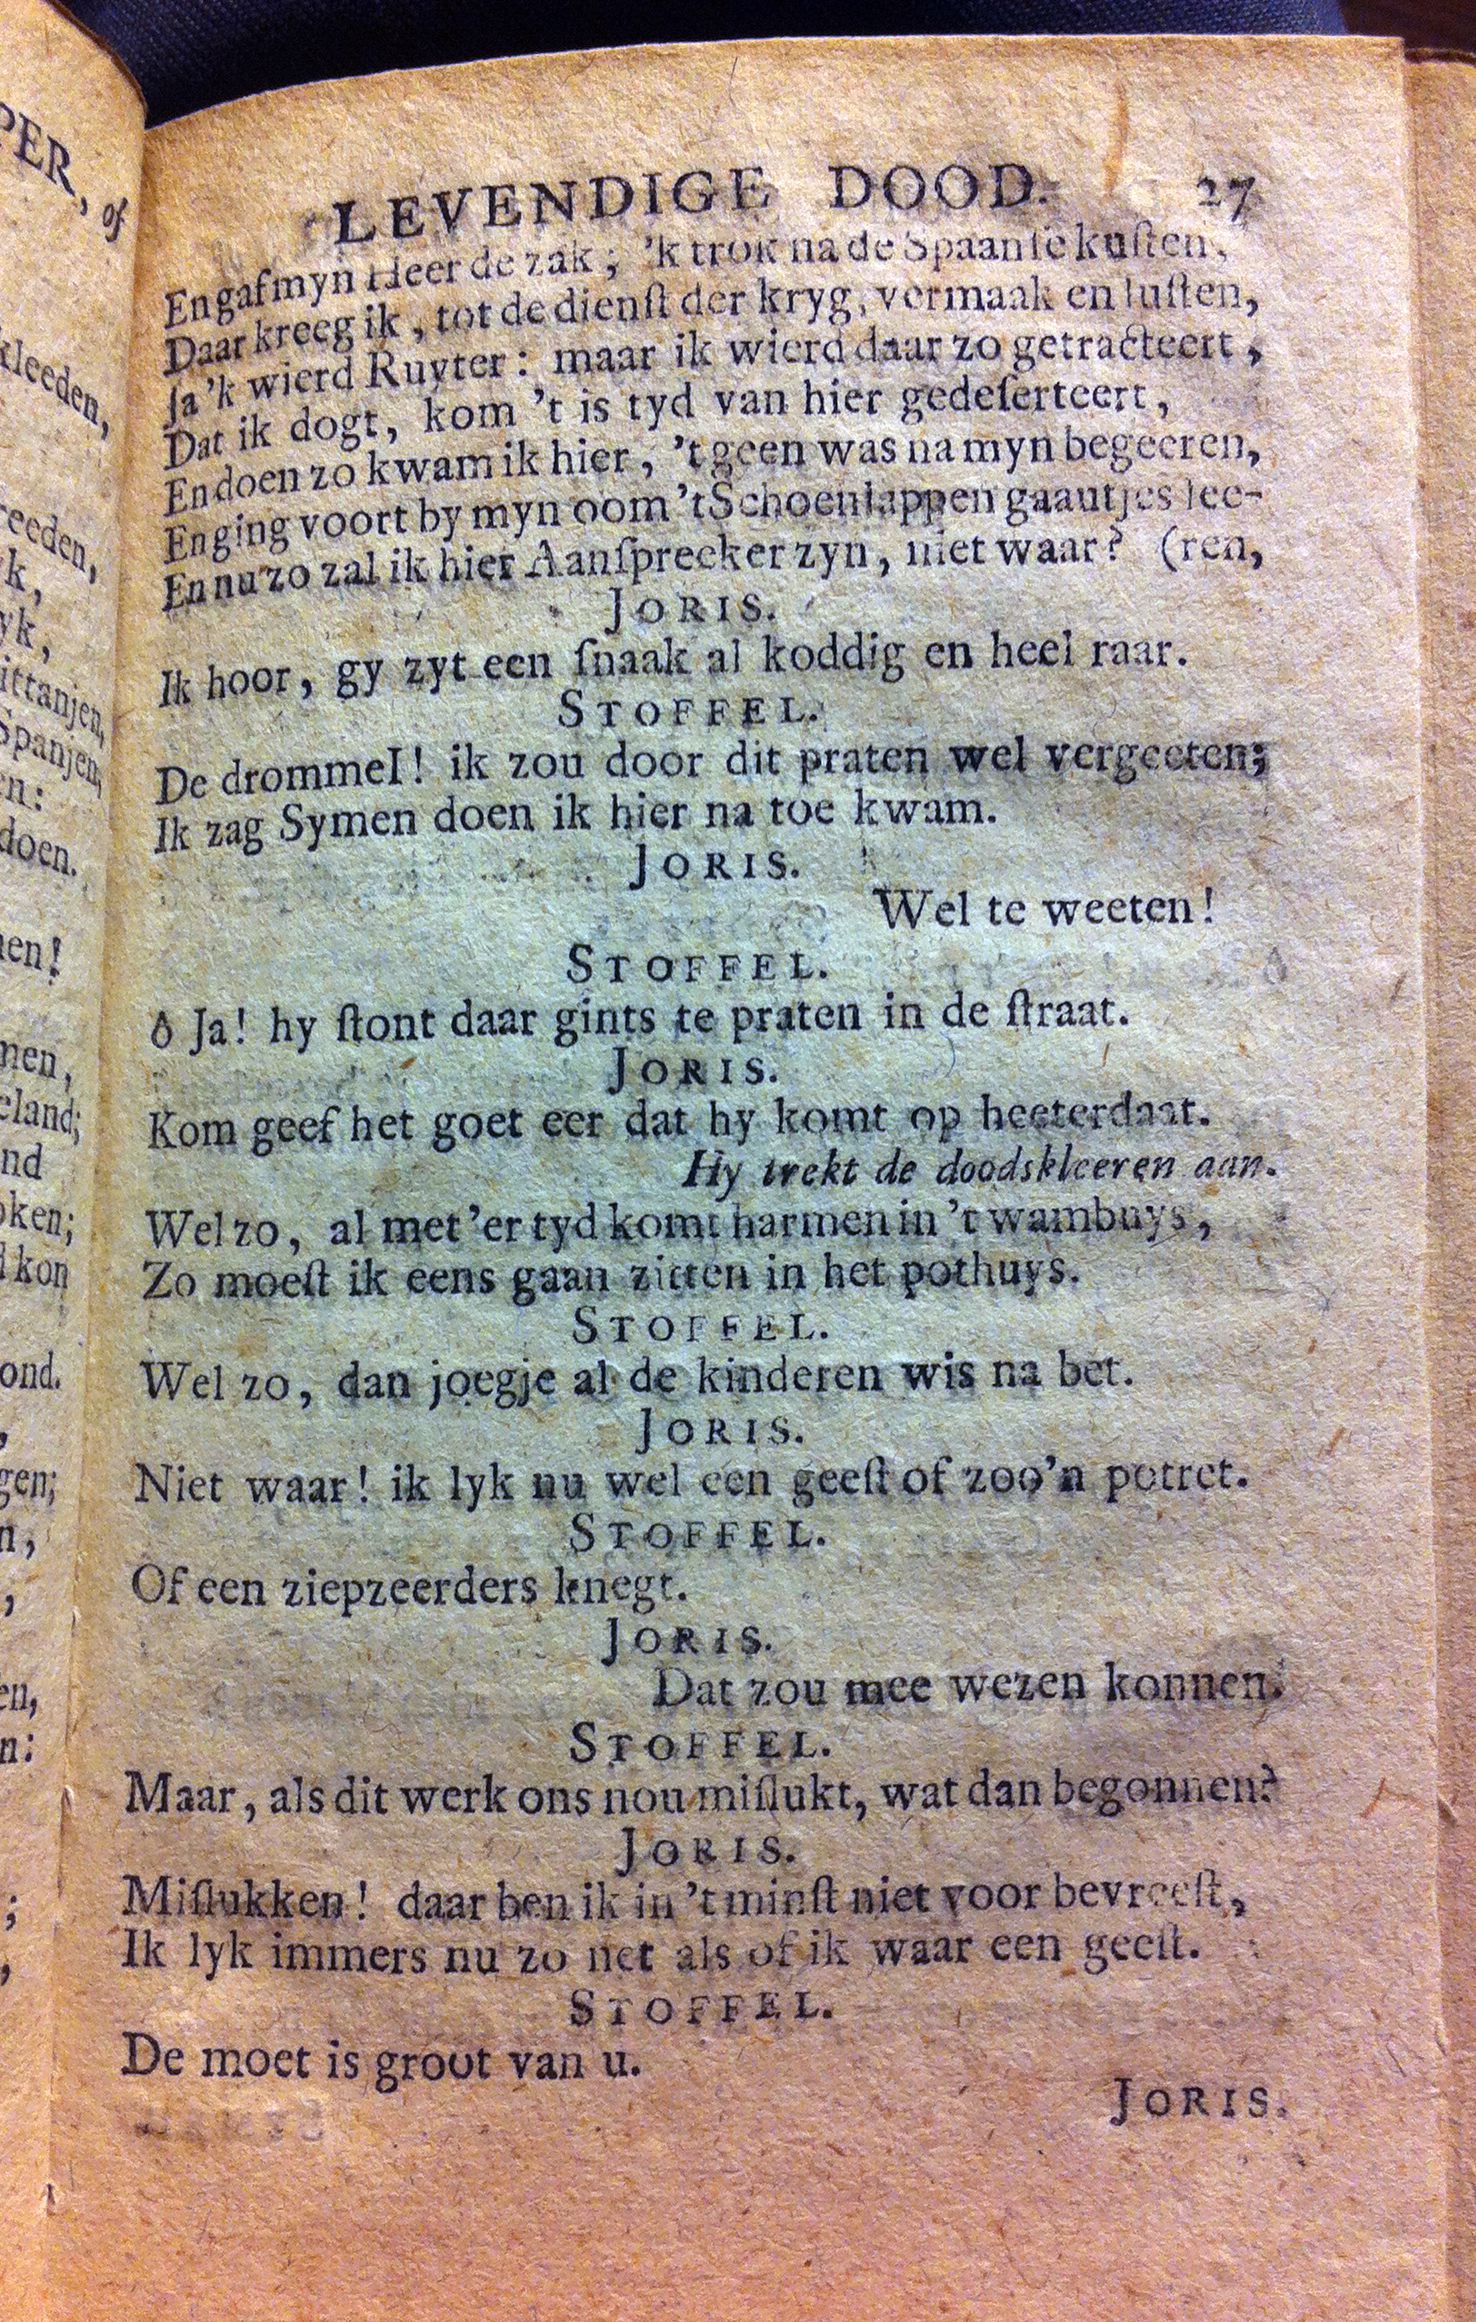 PER, of
kleeden,
reeden,
k,
yk,
ittanjen,
Spanjen,
en:
doen.
nen!
men,
eland;
nd
oken;
d kon
ond.
,
gen;
n,
,
en,
n:
;
,
LEVENDIGE DOOD. 27
En gaf myn Heer de zak; 'k trok na de Spaanſe kuſten,
Daar kreeg ik, tot de dienſt der kryg, vermaak en luſten,
Ja 'k wierd Ruyter: maar ik wierd daar zo getracteert,
Dat ik dogt, kom 't is tyd van hier gedeſerteert,
En doen zo kwam ik hier, 't geen was na myn begeeren,
En ging voort by myn oom 't Schoenlappen gaautjes lee-
En nu zo zal ik hier Aanſpreeker zyn, niet waar? (ren,
JORIS.
Ik hoor, gy zyt een ſnaak al koddig en heel raar.
STOFFEL.
De drommel! ik zou door dit praten wel vergeeten;
Ik zag Symen doen ik hier na toe kwam.
JORIS.
Wel te weeten!
STOFFEL.
ô Ja! hy ſtont daar gints te praten in de ſtraat.
JORIS.
Kom geef het goet eer dat hy komt op heeterdaat.
Hy trekt de doodskleeren aan.
Wel zo, al met 'er tyd komt harmen in 't wambuys,
Zo moeſt ik eens gaan zitten in het pothuys.
STOFFEL.
Wel zo, dan joegje al de kinderen wis na bet.
JORIS.
Niet waar! ik lyk nu wel een geeſt of zoo'n potret.
STOFFEL.
Of een ziepzeerders knegt.
JORIS.
Dat zou mee wezen konnen.
STOFFEL.
Maar, als dit werk ons nou miſlukt, wat dan begonnen?
JORIS.
Miſlukken! daar ben ik in 't minſt niet voor bevreeſt,
Ik lyk immers nu zo net als of ik waar een geeſt.
STOFFEL.
De moet is groot van u.
JORIS.